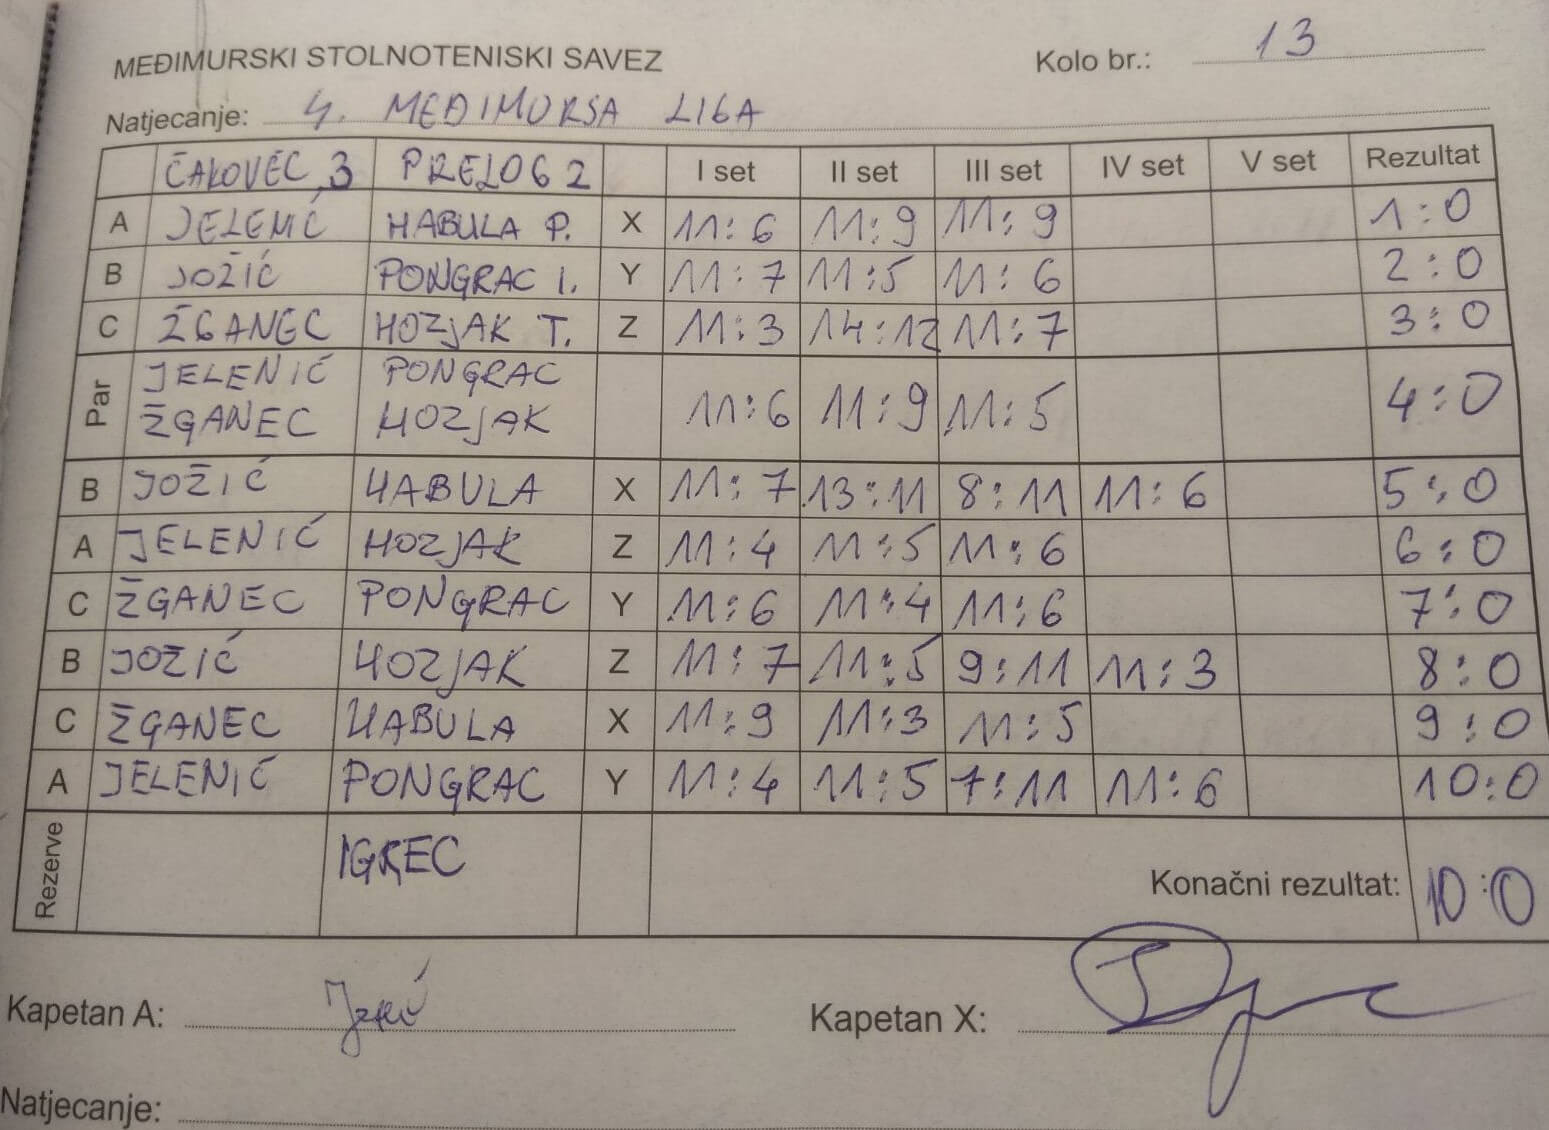 MEĐIMURSKI STOLNOTENISKI SAVEZ Kolo br.: 13
Natjecanje: 4. MEĐIMURSA LIGA
ČAKOVEC 3 PRELOG 2 I set II set III set IV set V set Rezultat
A JELENIĆ HABULA P. X 11:6 11:9 11:9 1:0
B JOŽIĆ PONGRAC I. Y 11:7 11:5 11:6 2:0
C ŽGANEC HOZJAK T. Z 11:3 14:12 11:7 3:0
Par JELENIĆ PONGRAC
ŽGANEC HOZJAK 11:6 11:9 11:5 4:0
B JOŽIĆ HABULA X 11:7 13:11 8:11 11:6 5:0
A JELENIĆ HOZJAK Z 11:4 11:5 11:6 6:0
C ŽGANEC PONGRAC Y 11:6 11:4 11:6 7:0
B JOŽIĆ HOZJAK Z 11:7 11:5 9:11 11:3 8:0
C ŽGANEC HABULA X 11:9 11:3 11:5 9:0
A JELENIĆ PONGRAC Y 11:4 11:5 7:11 11:6 10:0
Rezerve IGREC Konačni rezultat: 10:0
Kapetan A: Kapetan X:
Natjecanje: